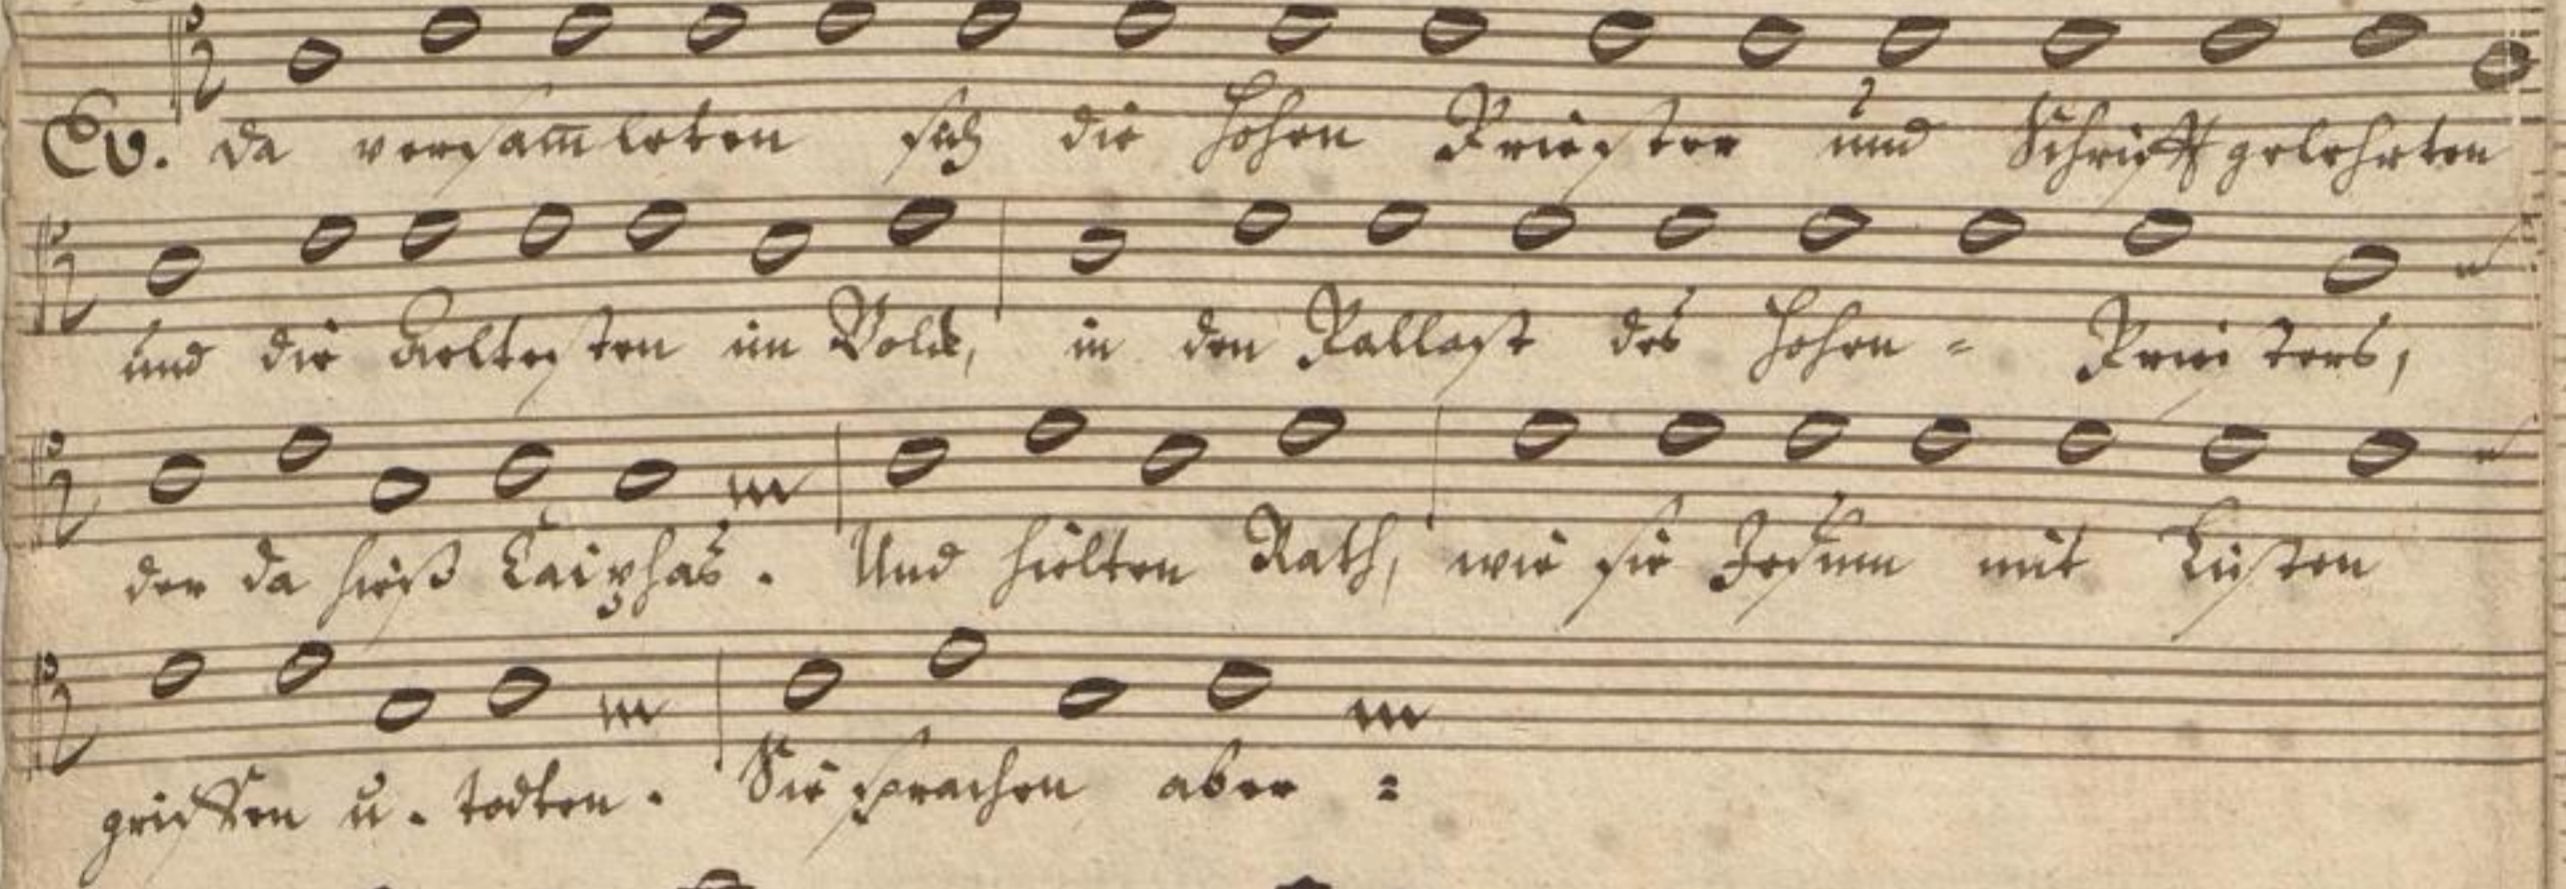 Ev. da versam̅leten sich die Hohen Priester und Schrifftgelehrten
und die Aeltesten im Volck, in den Pallast des Hohen = Priesters,
der da hieß Caiphas. Und hielten Rath, wie sie Jesum mit Listen
grieffen u. todten. Sie sprachen aber =